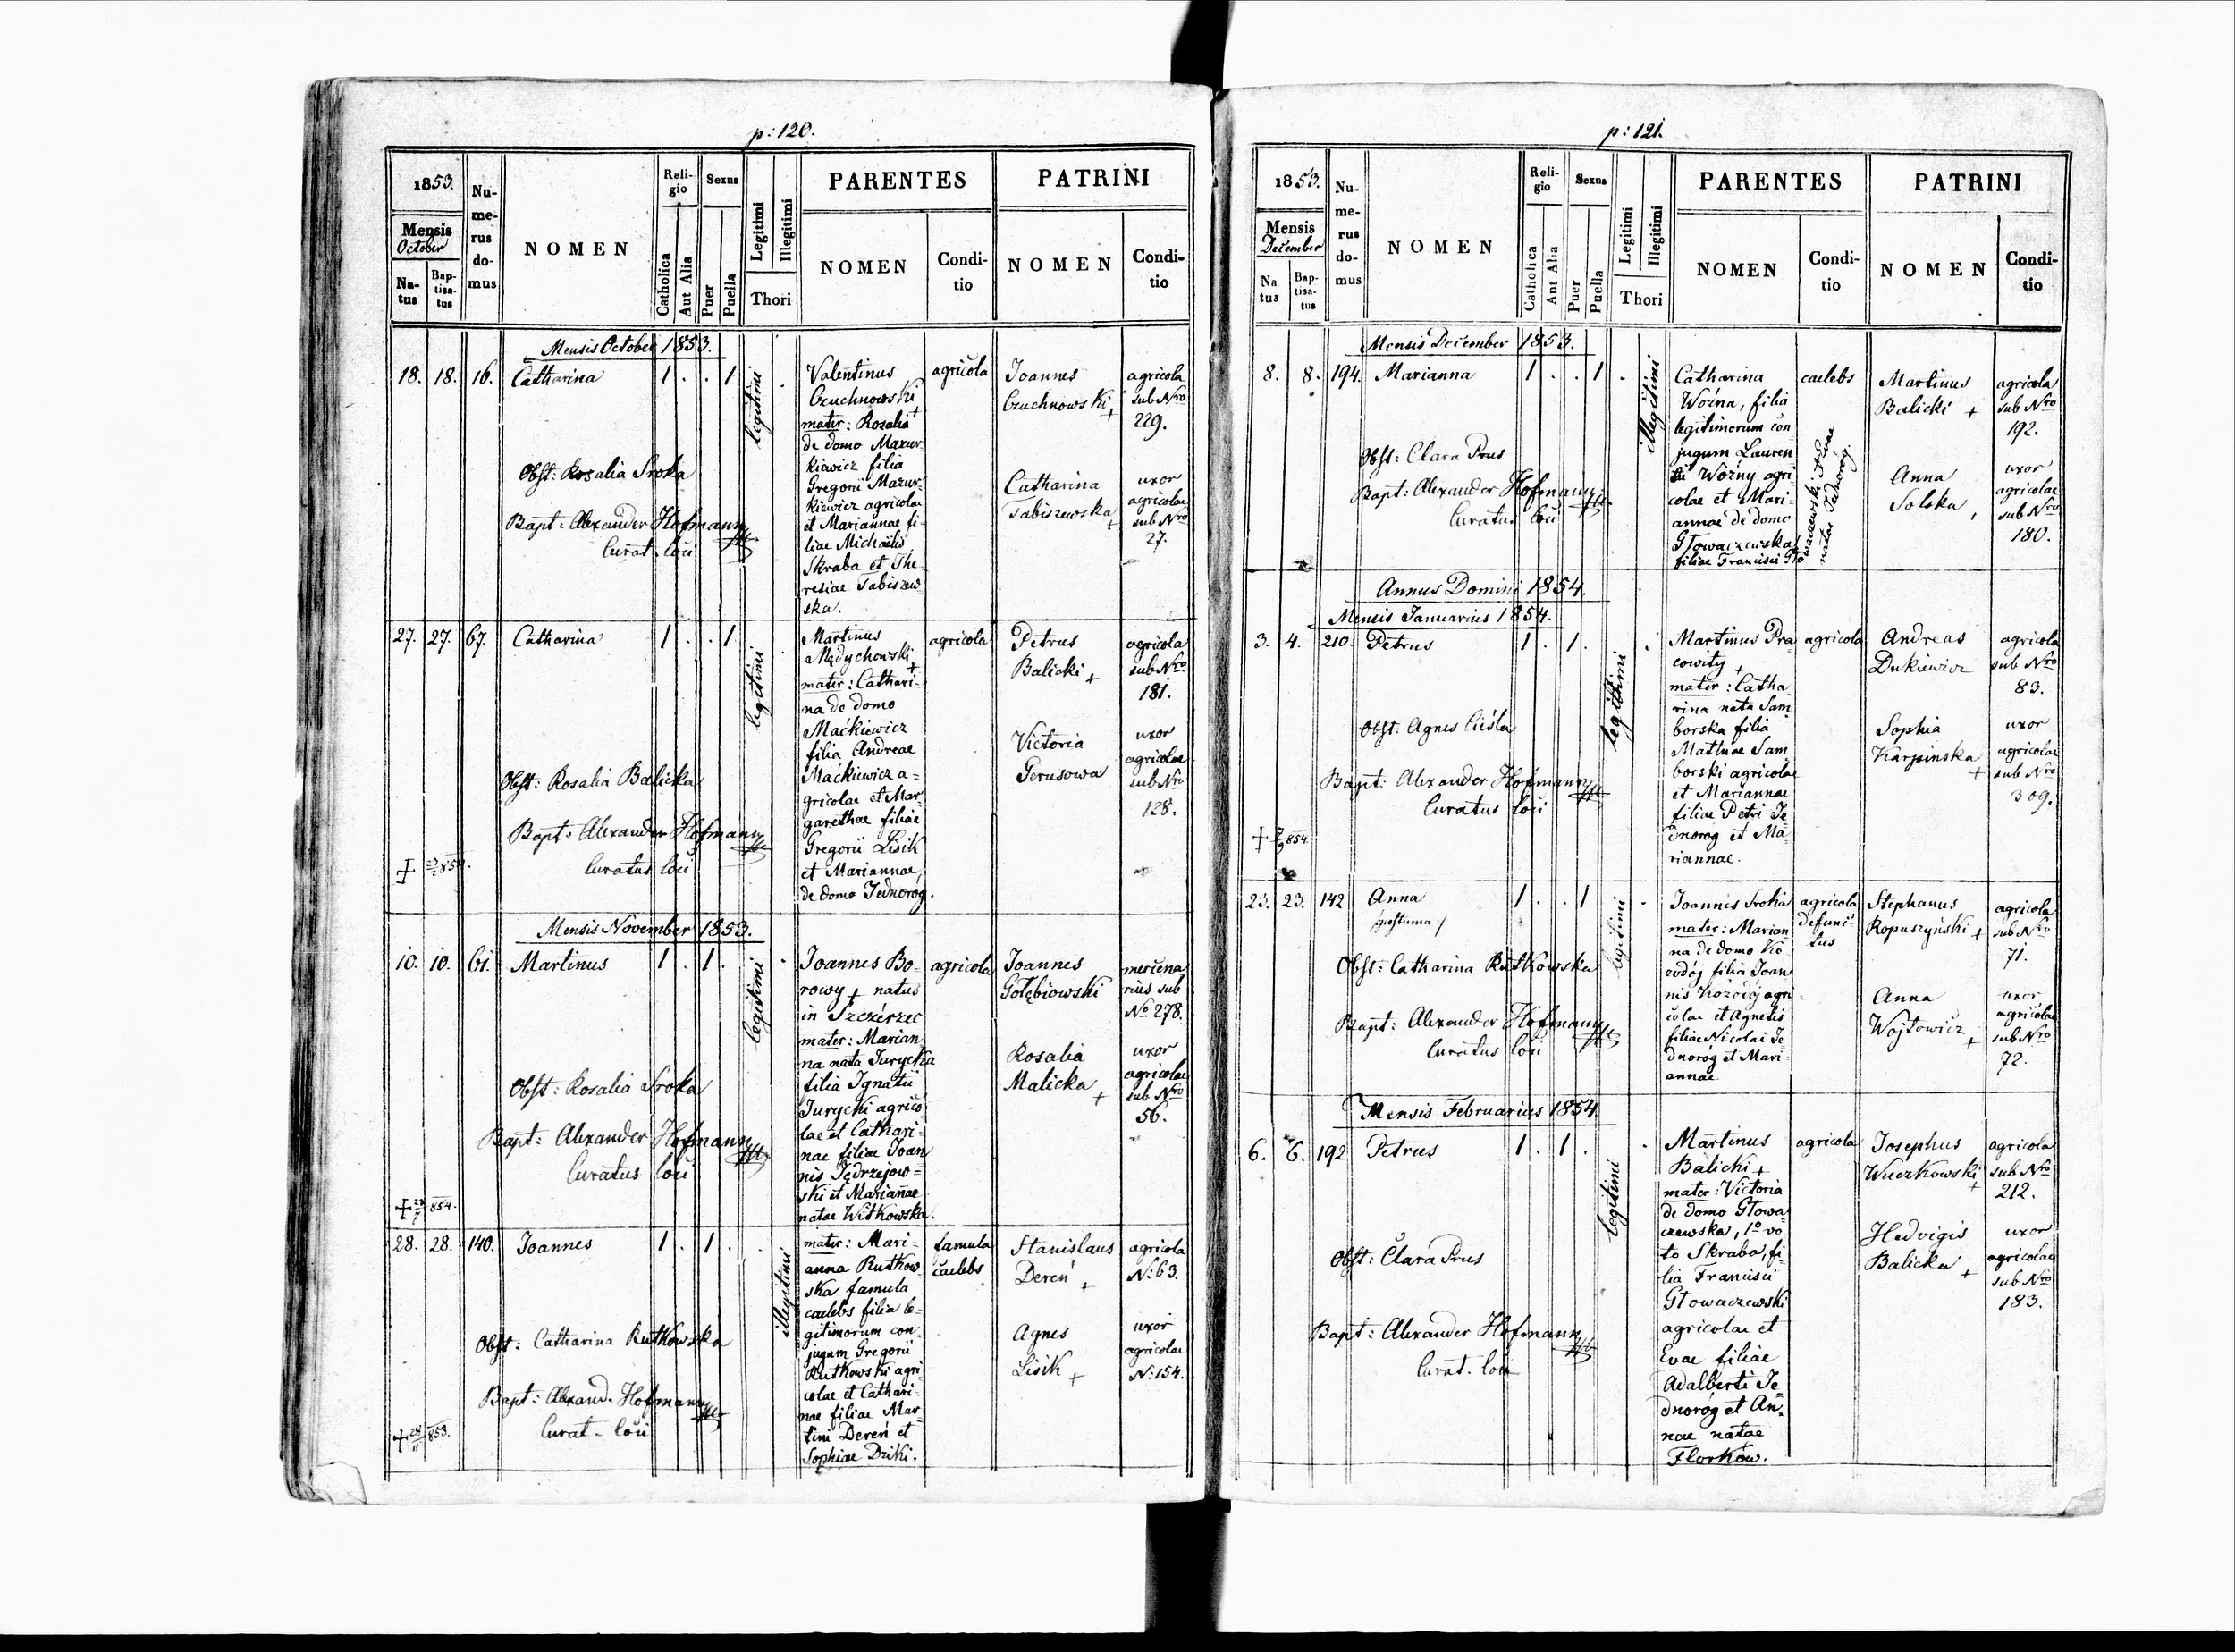 p: 120.
1853.
Mensis
October
Na-
tus
Bap-
tisa-
tus
Nu-
me-
rus
do-
mus
NOMEN
Reli-
gio
Catholica
Aut Alia
Sexus
Puer
Puella
Legitimi
Illegitimi
Thori
PARENTES
NOMEN
Condi-
tio
PATRINI
NOMEN
Condi-
tio
Mensis October 1853.
18. 18. 16. Catharina 1 . . 1
legitimi
Obst: Rosalia Sroka
Bapt: Alexander Hofmann
Curat. loci
Valentinus
Czuchnowski +
mater: Rosalia
de domo Mazur-
kiewicz filia
Gregorii Mazur-
kiewicz agricolae
et Mariannae fi-
liae Michaelis
Skraba et The-
resiae Tabiszew-
ska.
agricola
Joannes
Czuchnowski +
agricola
sub Nro
229.
Catharina
Tabiszewska +
uxor
agricolae
sub Nro
27.
27. 27. 67. Catharina 1 . . 1
legitimi
Obst: Rosalia Balicka
Bapt: Alexander Hofmann
Curatus loci
Martinus
Mądychowski +
mater: Cathari-
na de domo
Maćkiewicz
filia Andreae
Maćkiewicz a=
gricolae et Mar-
garethae filiae
Gregorii Lisik
et Mariannae,
de domo Jednorog.
agricola
Petrus
Balicki +
agricola
sub Nro
181.
Victoria
Gerusowa
uxor
agricolae
sub Nro
128.
Mensis November 1853.
10. 10. 61. Martinus 1 . 1 .
legitimi
Obst: Rosalia Sroka
Bapt: Alexander Hofmann
Curatus loci
Joannes Bo-
rowy + natus
in Szczérzec
mater: Marian
na nata Jurycka
filia Ignatii
Jurycki agrico
lae et Cathari-
nae filiae Joan
nis Jędrzejow=
ski et Mariannae
natae Witkowska.
agricola
Joannes
Gołębiowski
mercena
rius sub
No 278.
Rosalia
Malicka +
uxor
agricolae
sub Nro
56.
28. 28. 140. Joannes 1 . 1 .
illegitimi
Obst: Catharina Rutkowska
Bapt: Alexand. Hofmann
Curat. loci
+ 853.
mater: Mari-
anna Rutkow-
ska famula
caelebs filia le-
gitimorum con-
jugum Gregorii
Rutkowski agri
colae et Cathari-
nae filiae Mar-
tini Dereń et
Sophiae Dziki.
famula
caelebs
Stanislaus
Dereń +
agricola
N: 63.
Agnes
Lisik +
uxor
agricolae
N: 154.
p: 121.
1853.
Mensis
December
Na
tus
Bap-
tisa-
tus
Nu-
me-
rus
do-
mus
NOMEN
Reli-
gio
Catholica
Aut Alia
Sexus
Puer
Puella
Legitimi
Illegitimi
Thori
PARENTES
NOMEN
Condi-
tio
PATRINI
NOMEN
Condi-
tio
Mensis December 1853.
8. 8. 194. Marianna 1 . . 1 .
illegitimi
Obst: Clara Prus
Bapt: Alexander Hofmann
Curatus loci
Catharina
Woźna, filia
legitimorum con
jugum Lauren
tii Woźny agri-
colae et Mari-
annae de domo
Głowaczewska
filiae Francisci Gło
waczewski et Evae
natae Jednoróg.
caelebs
Martinus
Balicki +
agricola
sub Nro
192.
Anna
Solska,
uxor
agricolae
sub Nro
180.
Annus Domini 1854.
Mensis Januarius 1854.
3. 4. 210. Petrus 1 . 1 .
legitimi
Obst: Agnes Cieśla
Bapt: Alexander Hofmann
Curatus loci
+ 854.
Martinus Pra
cowity +
mater: Catha-
rina nata Sam
borska filia
Mathiae Sam
borski agricolae
et Mariannae
filiae Petri Je
dnorog et Ma-
riannae.
agricola
Andreas
Dukiewicz
agricola
sub Nro
83.
Sophia
Karpinska +
uxor
agricolae
sub Nro
309.
23. 23. 142 Anna 1 . . 1
/:postuma:/
legitimi
Obst: Catharina Rutkowska
Bapt: Alexander Hofmann
Curatus loci
Joannis Sroka
mater: Marian
na de domo Ko
zodój filia Joan
nis Kozodój agri-
colae et Agnetis
filiae Nicolai Je
dnoróg et Mari-
annae
agricola
defunc-
tus
Stephanus
Ropuszyński +
agricola
sub Nro
71.
Anna
Wojtowicz +
uxor
agricolae
sub Nro
72.
Mensis Februarius 1854
6. 6. 192 Petrus 1 . 1 .
legitimi
Obst: Clara Prus
Bapt: Alexander Hofmann
Curat. loci
Martinus
Balicki +
mater: Victoria
de domo Głowa-
czewska, 1o vo-
to Skraba, fi-
lia Francisci
Głowaczewski
agricolae et
Evae filiae
Adalberti Je-
dnoróg et An-
nae natae
Florków.
agricola
Josephus
Wuczkowski +
agricola
sub Nro
212.
Hedvigis
Balicka +
uxor
agricolae
sub Nro
183.